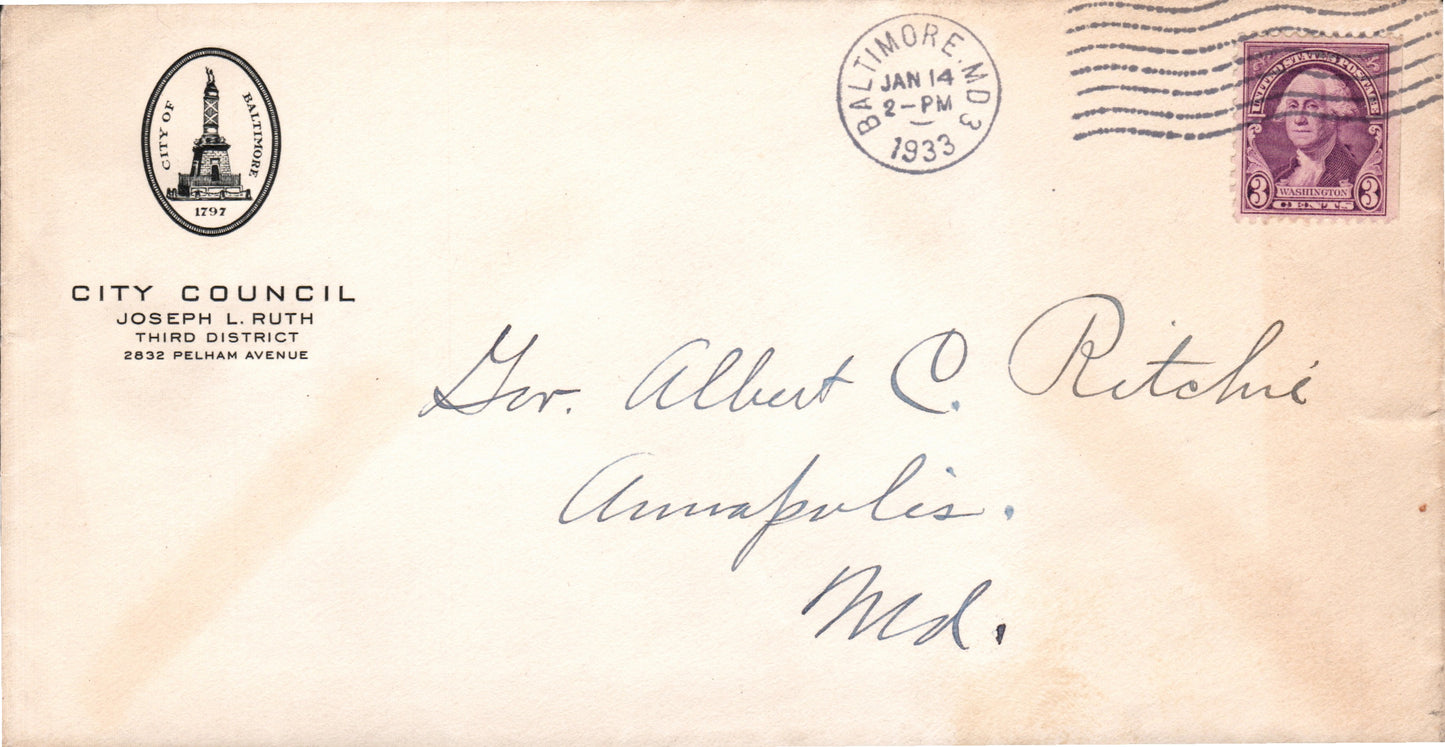 CITY OF BALTIMORE
1797
CITY COUNCIL
JOSEPH L. RUTH
THIRD DISTRICT
2832 PELHAM AVENUE
BALTIMORE, MD 3
JAN 14
2-PM
1933
UNITED STATES POSTAGE
3 WASHINGTON 3
CENTS
Gov. Albert C. Ritchie
Annapolis.
Md.